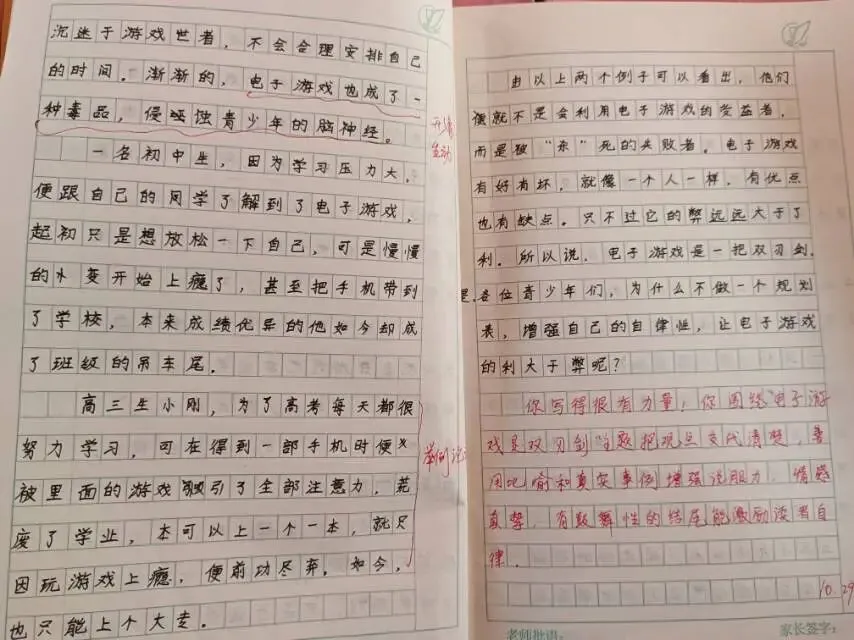 沉迷于游戏世者，不会合理安排自己
的时间。渐渐的，电子游戏也成了一
种毒品，侵蚀青少年的脑神经。
生动
一名初中生，因为学习压力大，
便跟自己的同学了解到了电子游戏，
起初只是想放松一下自己，可是慢慢
的变开始上瘾了，甚至把手机带到
了学校，本来成绩优异的他如今却成
了班级的吊车尾。
高三生小刚，为了高考每天都很
努力学习，可在得到一部手机时便
举例论
被里面的游戏吸引了全部注意力，荒
废了学业，本可以上一个一本，就只
因玩游戏上瘾，便前功尽弃。如今，
也只能上个大专。
由以上两个例子可以看出，他们
便就不是会利用电子游戏的受益者，
而是被“杀”死的失败者。电子游戏
有好有坏，就像一个人一样，有优点
也有缺点。只不过它的弊远远大于了
利。所以说，电子游戏是一把双刃剑。
各位青少年们，为什么不做一个规划
表，增强自己的自律性，让电子游戏
的利大于弊呢？
你写得很有力量！你围绕“电子游
戏是双刃剑”主题把观点交代清楚，善
用比喻和真实事例增强说服力，情感
真挚，有鼓舞性的结尾能激励读者自
律。
10.29
老师批语：
家长签字：